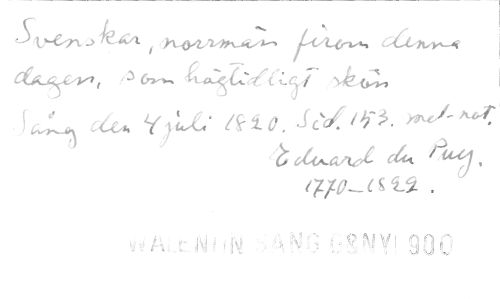 Svenskar, norrmän firom denna
dagen, som högtidligt skön
Sång den 4 juli 1820. Sid. 153. med not.
Eduard du Puy.
1770–1822.
WALENTIN SÅNG 08NYI 900